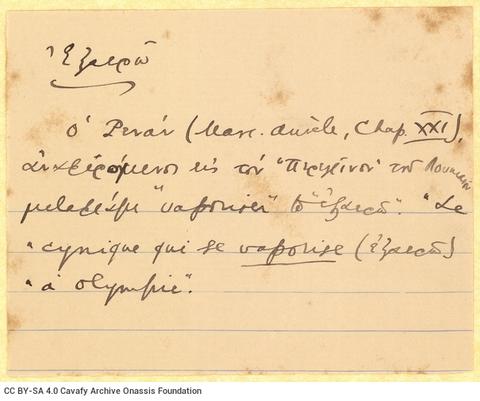 Ἐξαερῶ
Ὁ Ρενάν (Marc. Aurèle, Chap. XXI),
ἀναφερόμενος εἰς τὸν "Περεγρῖνον" τοῦ Λουκιανοῦ
μεταφράζει "vaporiser" τὸ "ἐξαερῶ". "Le
"cynique qui se vaporise (ἐξαερῶ)
"à Olympie".
CC BY-SA 4.0 Cavafy Archive Onassis Foundation